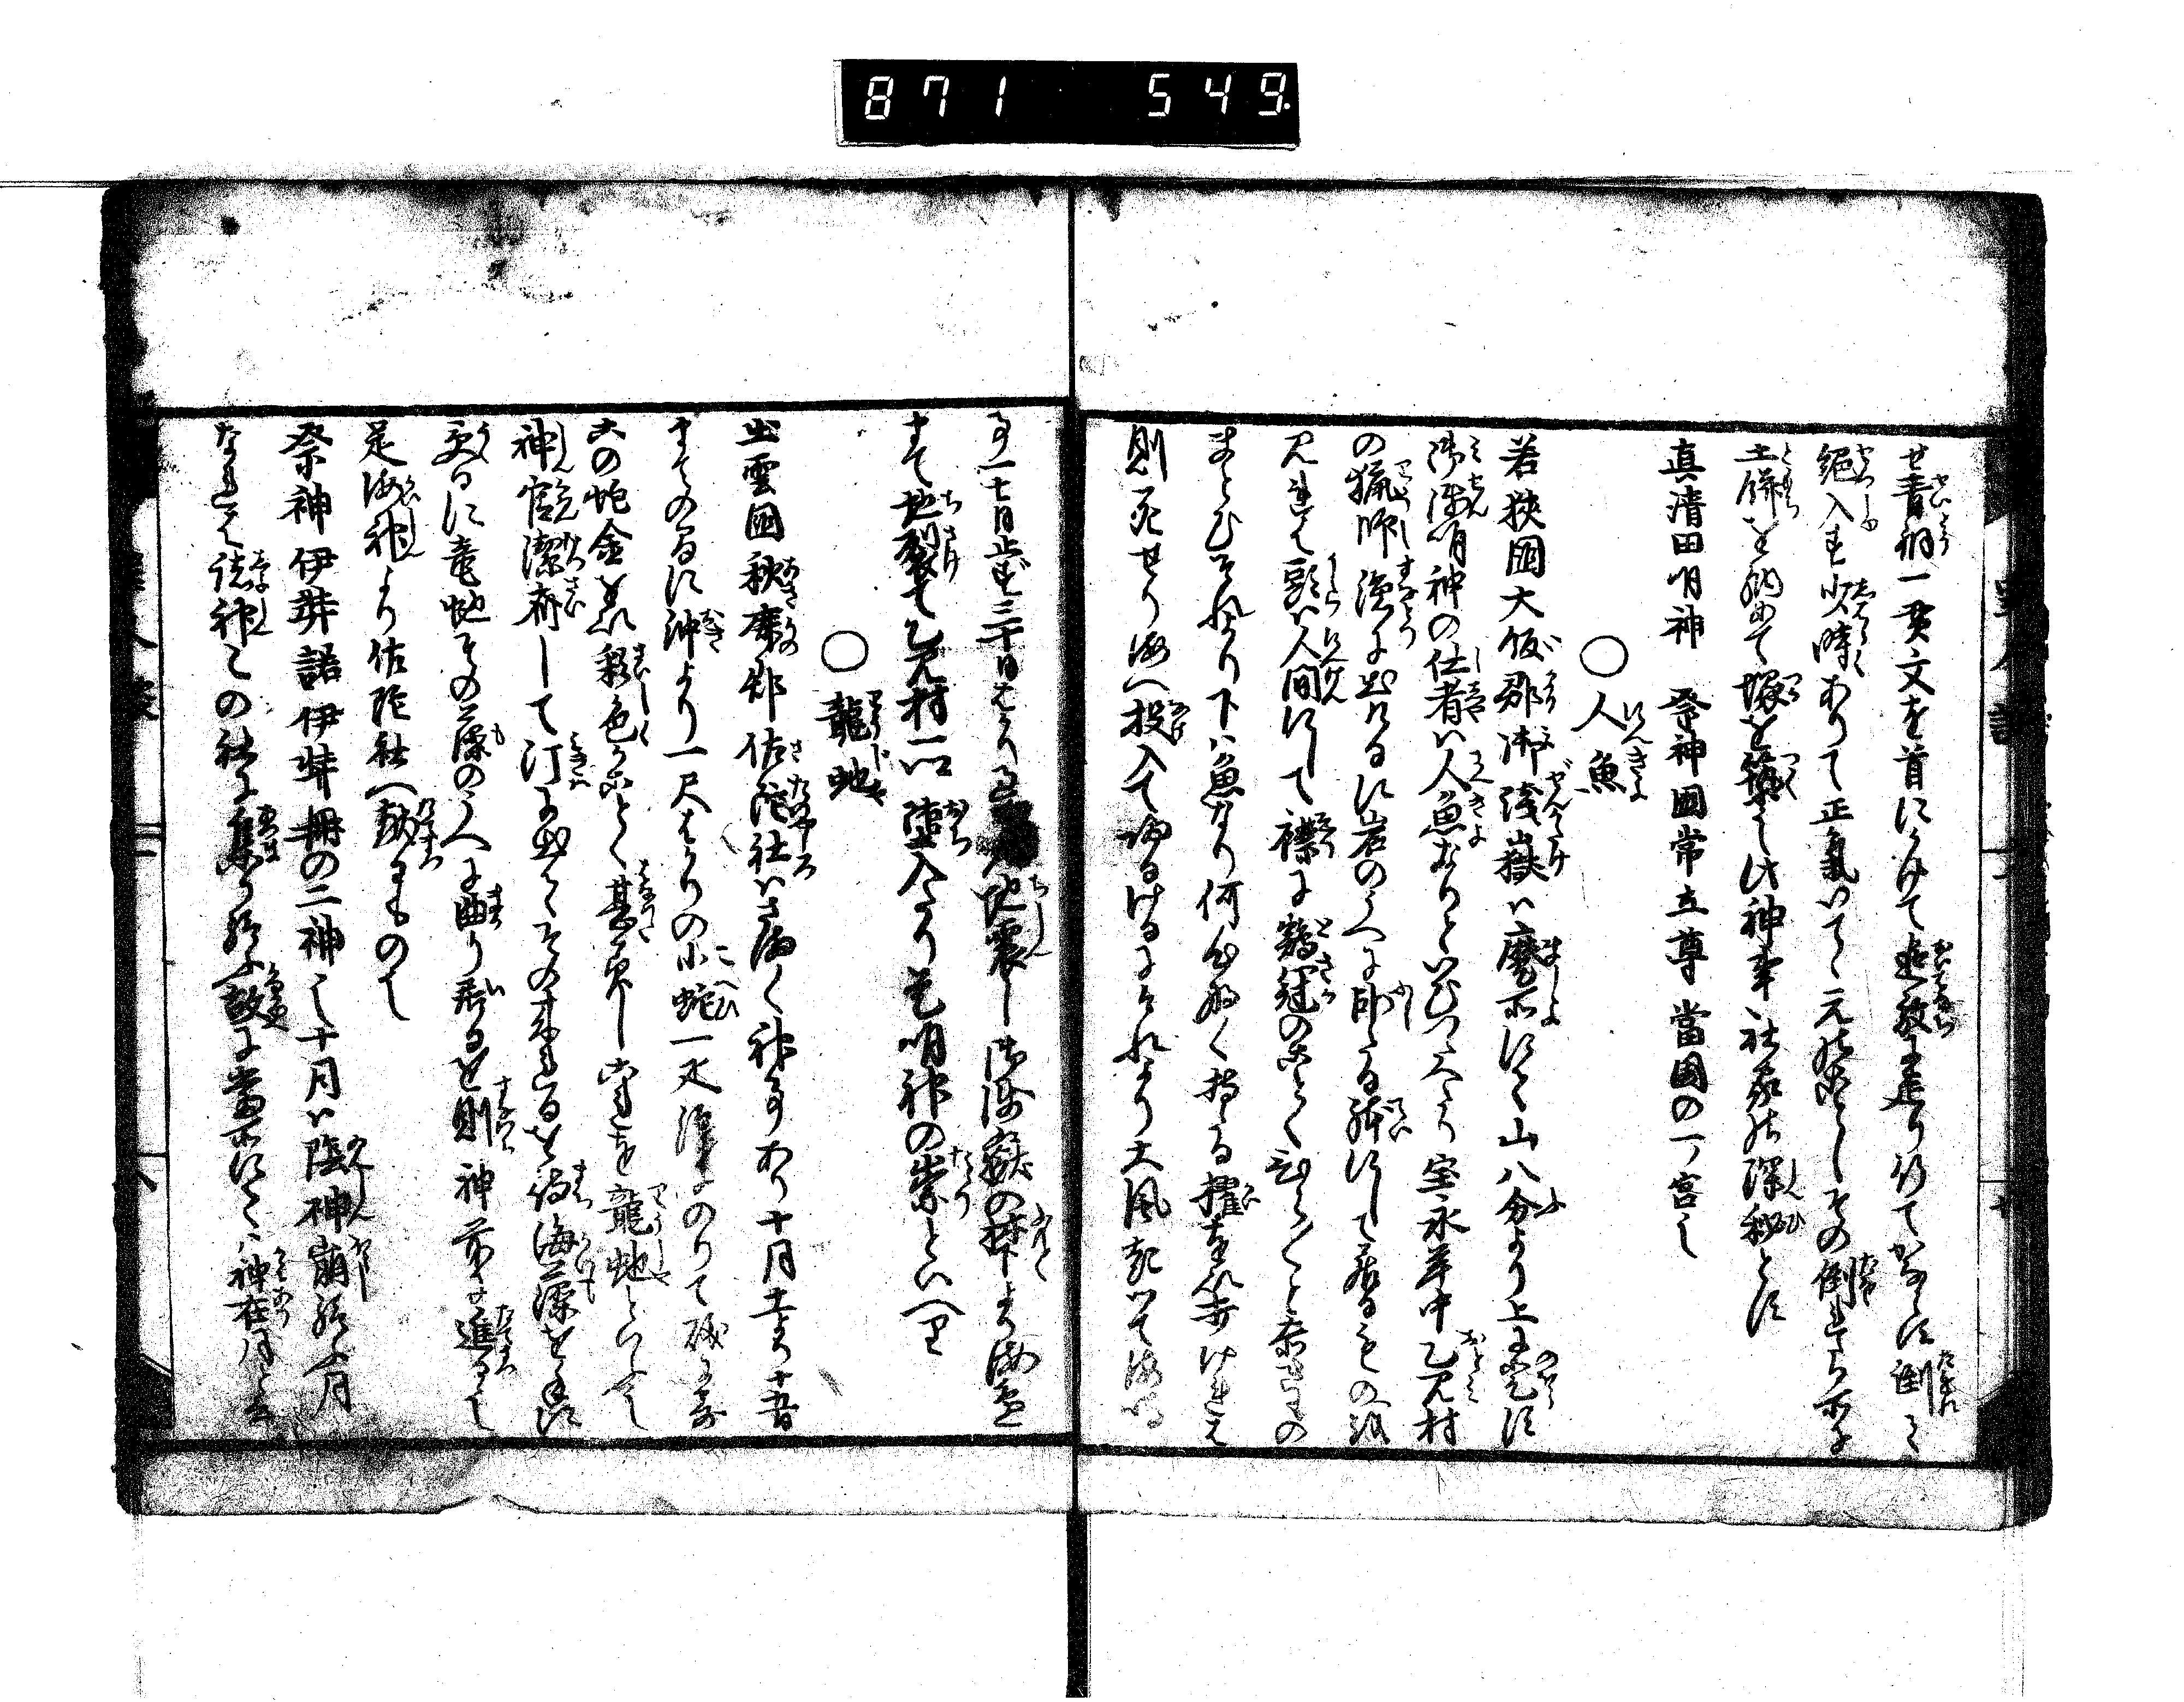 871 549
せ青銅一貫文を首にかけて追放に走り行てかならす倒る
絶入す少時ありて正氣いてく元のことしその倒れたる所に
土餅を納めて塚を築く此神事社家の深秘とす
真清田明神 祭神国常立尊 當国の一ノ宮也
○人魚
若狭國大飯郡御浅嶽は魔所にて山八分より上に登らす
御浅明神の仕者は人魚なりといひつたへたり宝永年中乙見村
の猟師漁に出けるに岩のうへに臥たる体にして居るものを
見れは頭は人間にして襟に鶏冠のことくひらひらと赤きもの
まとひそれより下は魚なり何心なく持たる櫂を以打けれは
則死せり海へ投入て帰りけるにそれより大風起て海鳴
事一七日止す三十日はかり過大地震し御浅嶽の麓より海辺
まて地裂て乙見村一郷堕入たり是明神の祟といへり
○龍蛇
出雲國秋鹿郡佐陀社にさまさま神事あり十月十一日より十五日
まての間に沖より一尺はかりの小蛇一疋浪にのりて磯に寄
る此蛇金色彩色のことく甚美しこれを龍蛇といふて
神官潔斎して汀に出てその来れるを待海藻を手に
受るに竜蛇その藻のうへに曲り居るを則神前に進るなり
是海神より佐陀社へ献るもの也
祭神伊弉諾伊弉冊の二神也十月は陰神崩給ふ月
なれは諸神この社に集り給ふ故に當所にては神在月と云